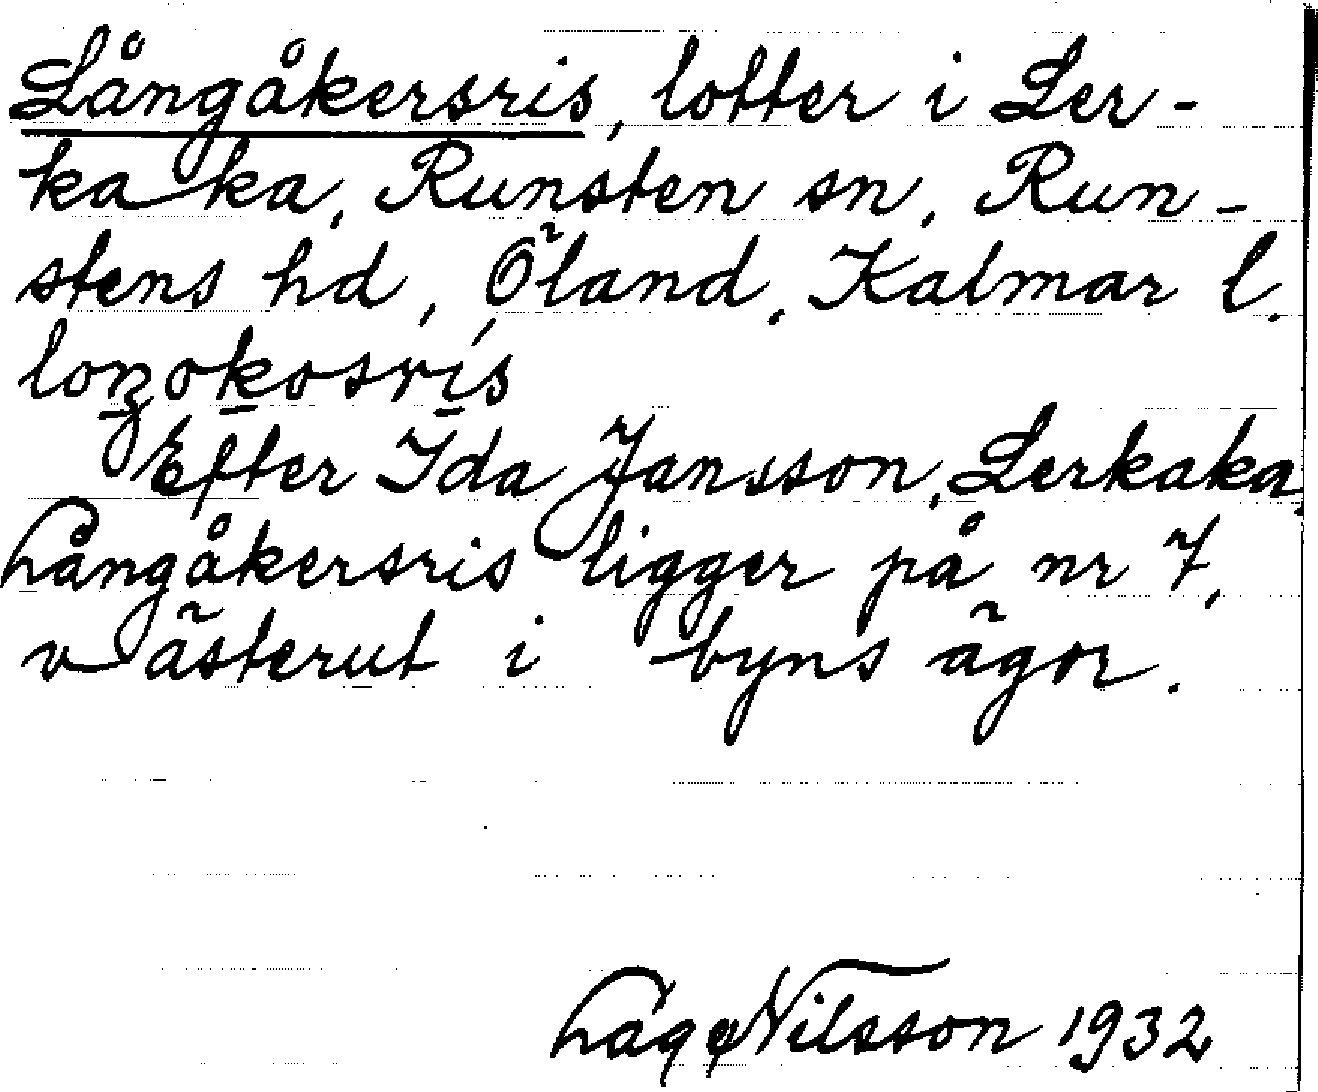 Långåkersris, lotter i Ler-
ka ka, Runsten sn, Run-
stens hd, Öland, Kalmar l.
Efter Ida Jansson, Lerkaka,
Långåkersris ligger på nr 7,
västerut i byns ägor.
Nilsson 1932